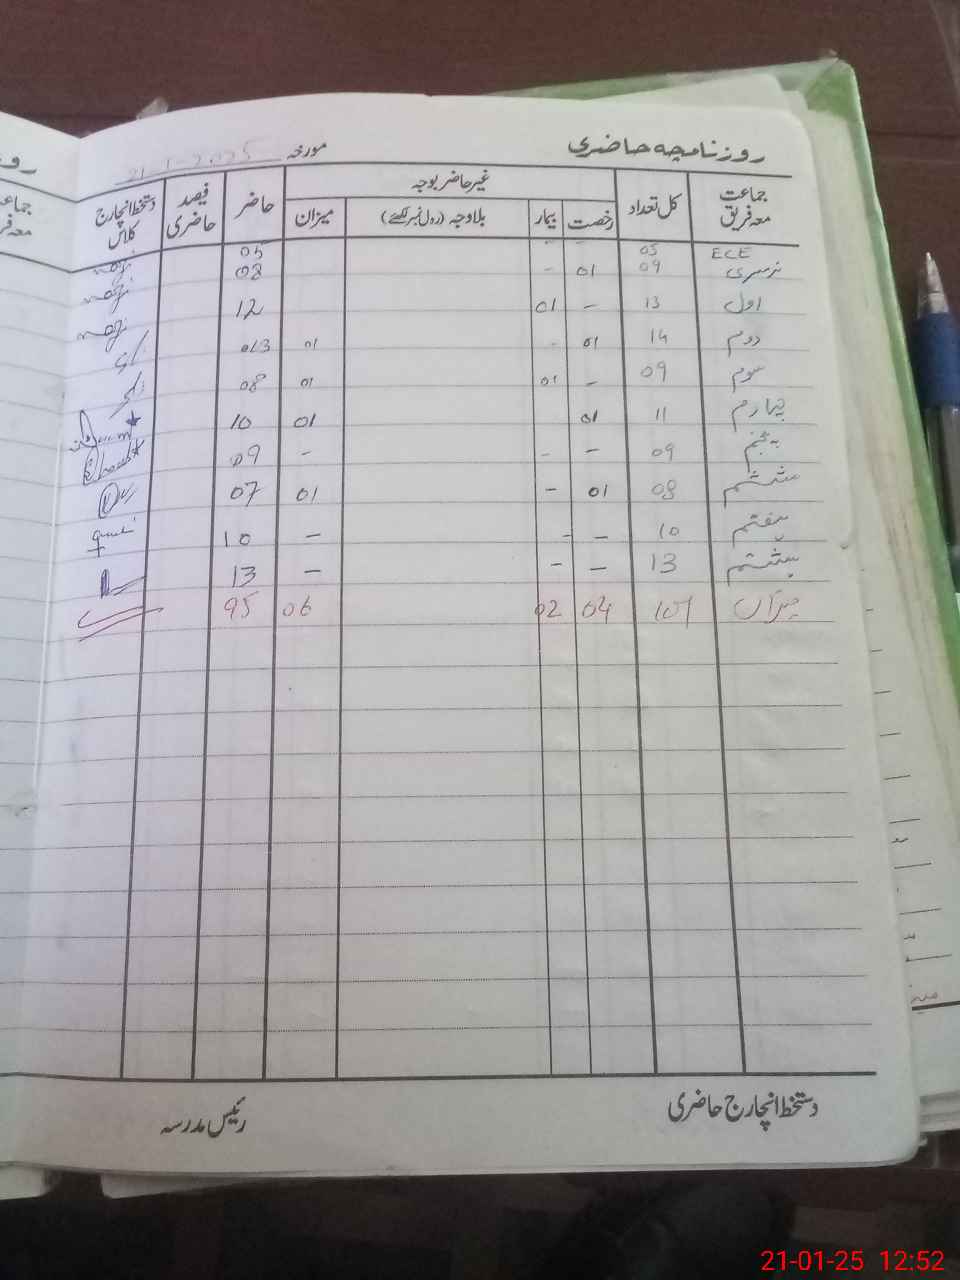 روزنامچہ حاضری مورخہ 21-1-2025
جماعت معہ فریق کل تعداد غیر حاضر بوجہ حاضر فیصد حاضری دستخط انچارج کلاس
رخصت بیمار بلاوجہ (رول نمبر لکھئے) میزان
ECE 05 05
نرسری 09 01 - 08
اول 13 - 01 12
دوم 14 01 - 01 013
سوم 09 - 01 01 08
چہارم 11 01 01 10
پنجم 09 - - - 09
ششم 08 01 - 01 07
ہفتم 10 - - - 10
ہشتم 13 - - - 13
میزان 101 04 02 06 95
دستخط انچارج حاضری رئیس مدرسہ
21-01-25 12:52